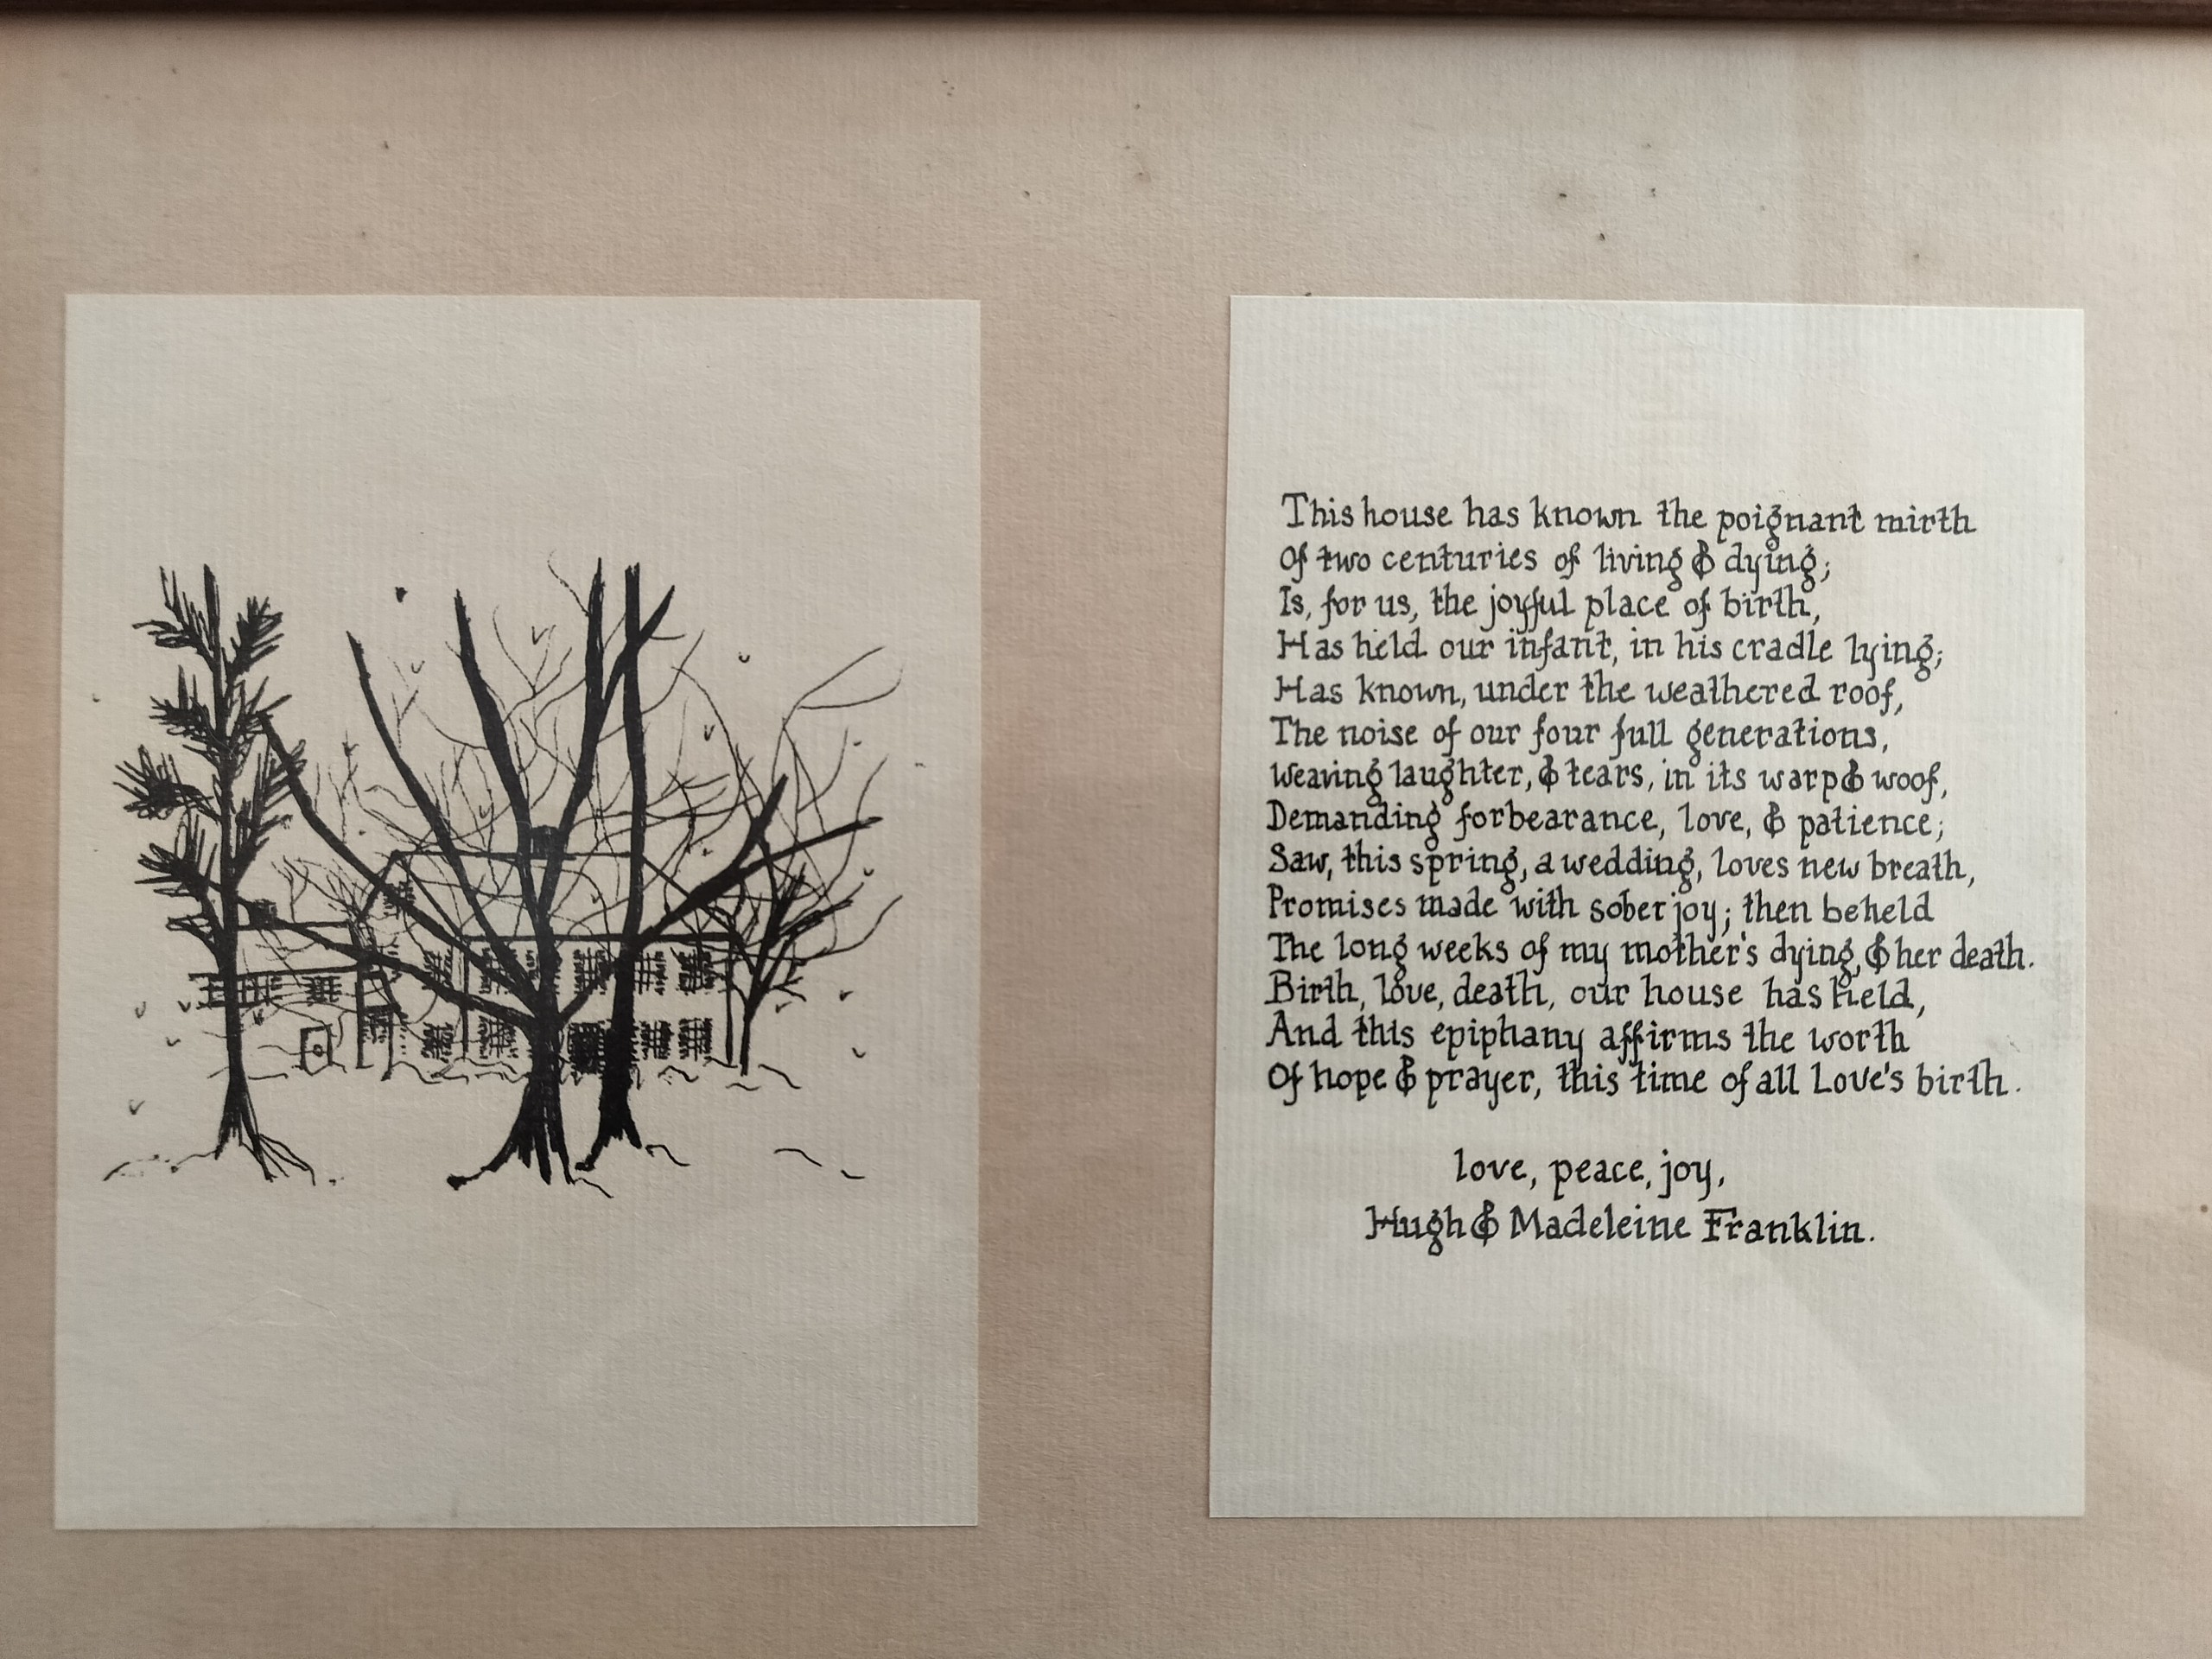 This house has known the poignant mirth
Of two centuries of living & dying;
Is, for us, the joyful place of birth,
Has held our infant, in his cradle lying;
Has known, under the weathered roof,
The noise of our four full generations,
Weaving laughter, & tears, in its warp & woof,
Demanding forbearance, love, & patience;
Saw, this spring, a wedding, loves new breath,
Promises made with sober joy; then beheld
The long weeks of my mother's dying, & her death.
Birth, love, death, our house has held,
And this epiphany affirms the worth
Of hope & prayer, this time of all Love's birth.
love, peace, joy,
Hugh & Madeleine Franklin.